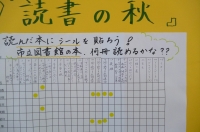 『読書の秋』
読んだ本にシールを貼ろう!
市立図書館の本、何冊読めるかな??